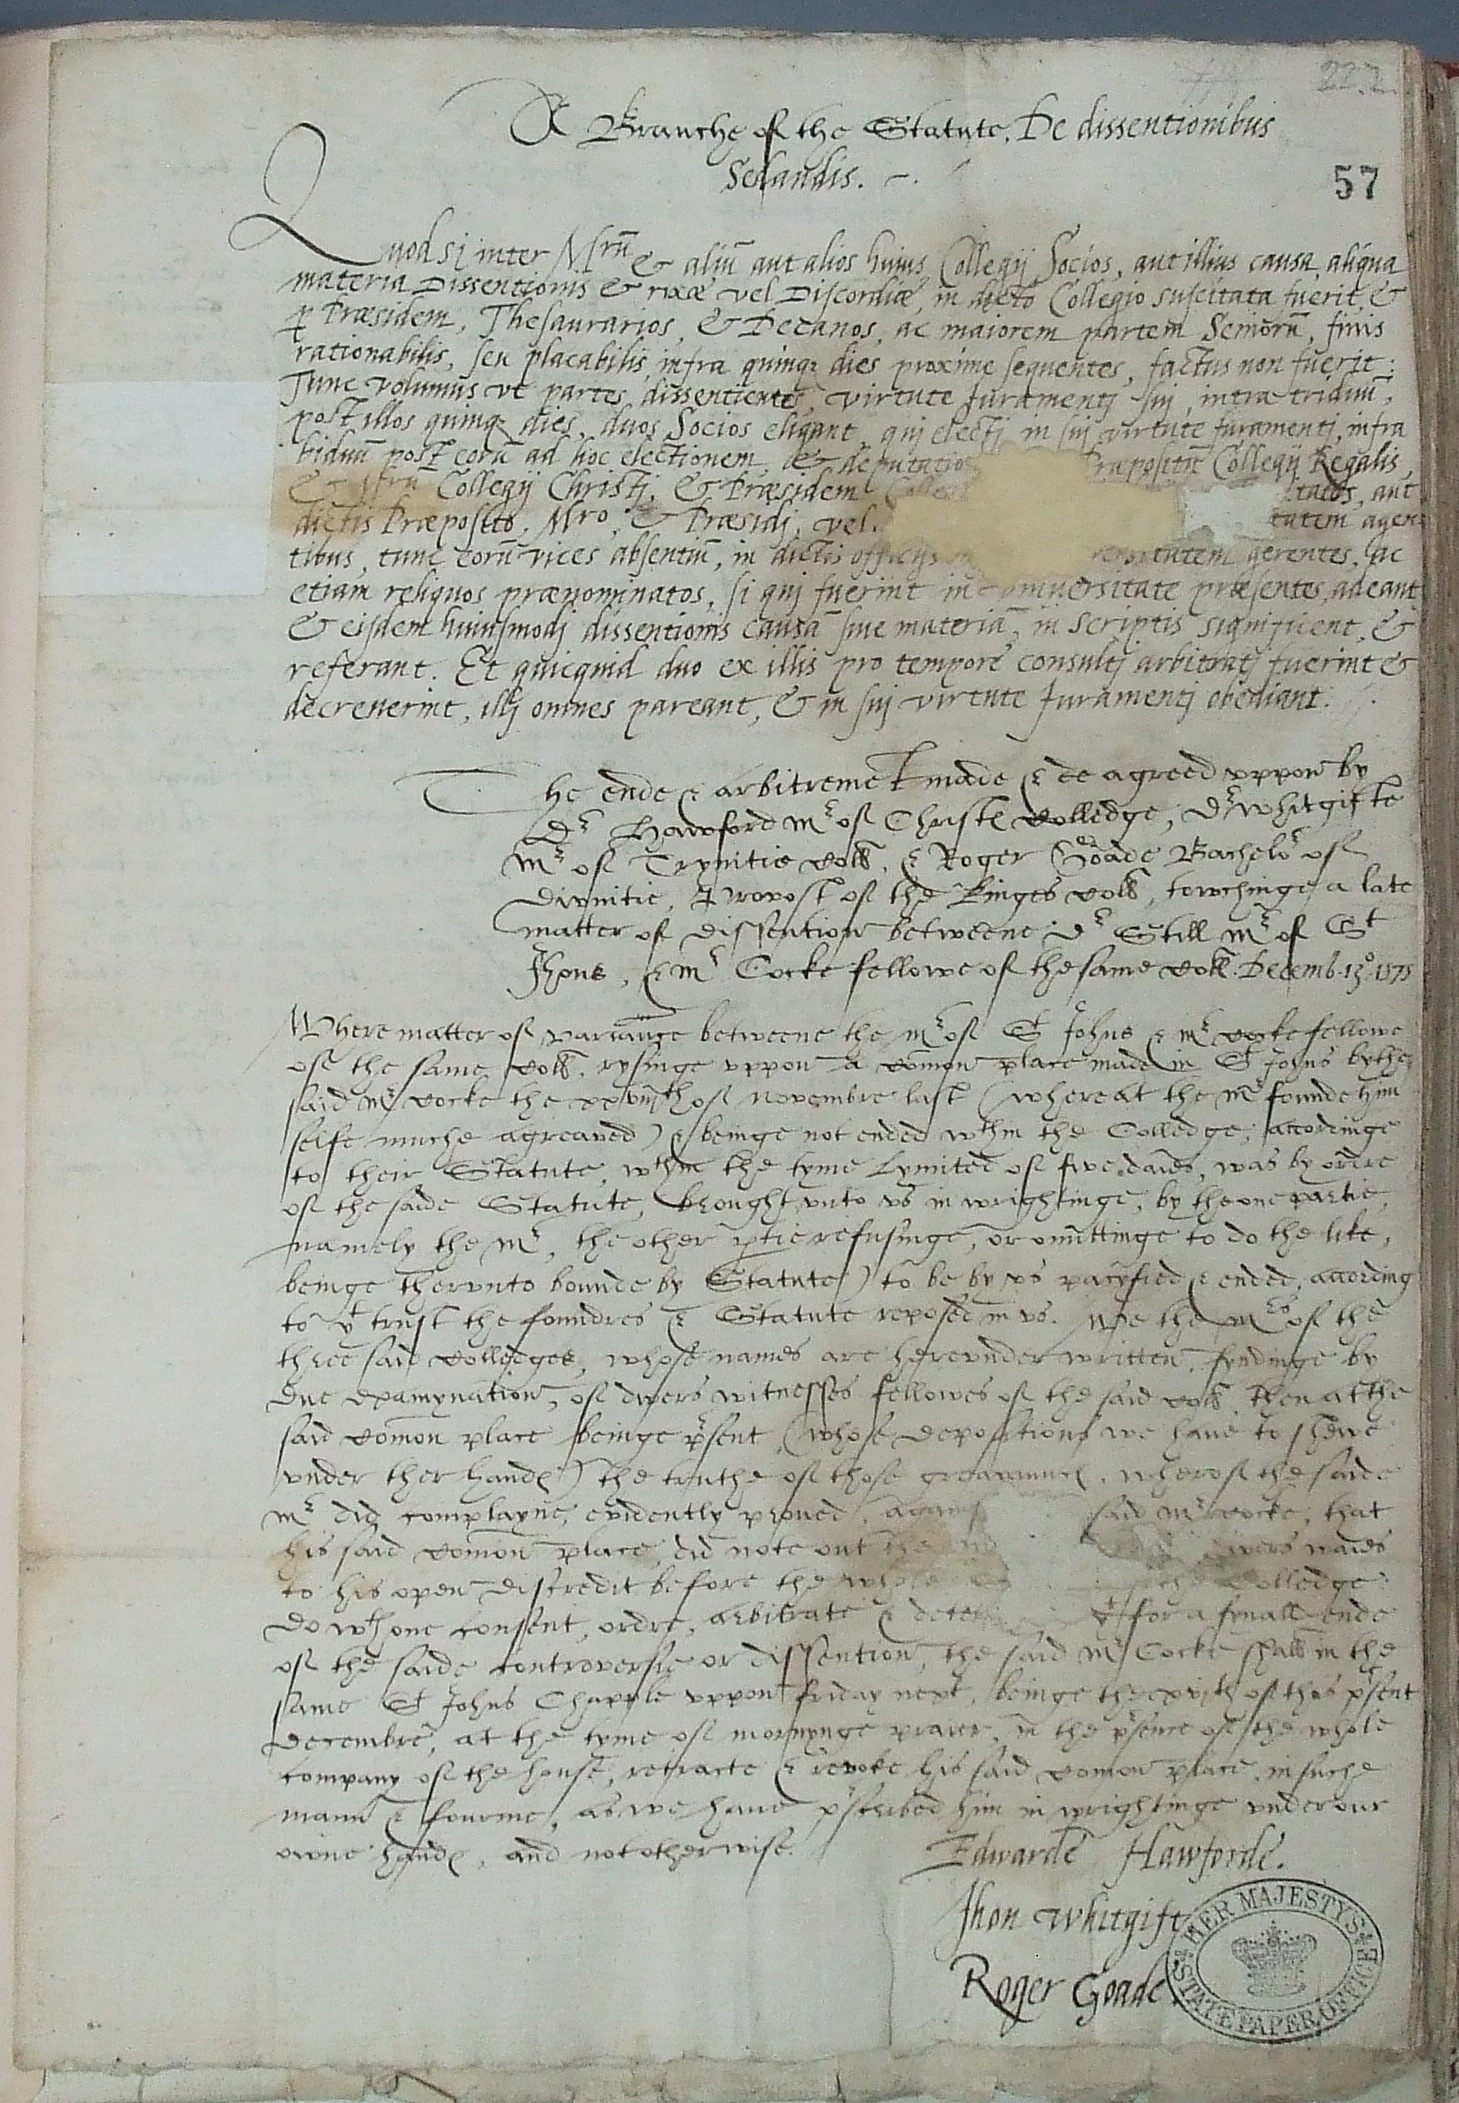 222
A Branche of the Statute. De dissentionibus
Sedandis.
57
Quod si inter Mrū & aliū aut alios huius Collegij Socios, aut illius causa, aliqua
materia Dissentionis & rixæ vel Discordiæ, in dicto Collegio suscitata fuerit, &
p Præsidem, Thesaurarios, & Decanos, ac maiorem partem Seniorū, finis
rationabilis, seu placabilis infra quinq; dies proxime sequentes, factus non fuerit:
Tunc volumus vt partes dissentientes, virtute Juramentj suj, intra triduū,
post illos quinq; dies, duos Socios eligant, quj electj in suj virtute juramentj, infra
biduū post eorū ad hoc electionem, & deputatio Præpositū Collegij Regalis,
& Mrū Collegij Christj, & Præsidem Colleg tatos, aut
dictis Præposito, Mro, & Præsidj, vel tatem agen
tibus, tunc eorū vices absentiū, in dictis officijs gerentes, ac
etiam reliquos prænominatos, si quj fuerint in vniuersitate præsentes, adeant
& eisdem huiusmodj dissentionis causā siue materiā, in scriptis significent, &
referant. Et quicquid duo ex illis pro tempore consultj arbitratj fuerint &
decreuerint, illj omnes pareant, & in suj virtute Juramentj obediant.
The ende & arbitremet made & de agreed vppon by
Dr Hawford Mr of Christs Colledge, Dr Whitgifte
Mr of Trynitie Coll. & Roger Goade Bachelor of
Diuinitie, Provost of the Kinges Coll, towchinge a late
matter of dissention betweene Dr Still Mr of St
Jhons, & Mr Cocke fellowe of the same Coll. Decemb. 13º 1575
Where matter of variance betweene the Mr of St Johns & Mr Cocke fellowe
of the same Coll. rysinge vppon a cōmon place made in St Johns by the
said Mr Cocke the xxviijth of Novembre last (whereat the Mr founde him
selfe muche agreaued) & beinge not ended wthin the Colledge, accordinge
to their Statute, wthin the tyme lymited of five daies, was by ordre
of the saide Statute, brought vnto vs in wrightinge, by the one partie,
namely the Mr, the other ptie refusinge, or omittinge to do the like,
beinge thervnto bounde by Statute) to be by vs pacyfied & ended, according
to yt trust the foundres & Statute reposed in vs. We the Mrs of the
three said Colledges, whose names are herevnder written, fyndinge by
due examynation, of divers witnesses fellowes of the said Coll. then at the
said cōmon place beinge psent (whose depositions we haue to shewe
vnder ther hands) the truthe of those , wherof the saide
Mr did complayne, evidently proued, against said Mr Cocke, that
his said cōmon place, did note out the divers waies
to his open discredit before the whole Colledge:
do wth one consent, ordre, arbitrate & for a fynall ende
of the saide controversie or dissention, the said Mr Cocke shall in the
same St Johns Chapple vppon friday next, beinge the xvjth of this psent
Decembre, at the tyme of mornynge praier, in the psence of the whole
company of the house, retracte & revoke his said cōmon place, in suche
manner & fourme, as we haue pscribed him in wrightinge vnder our
owne hands, and not otherwise.
Edwarde Hawforde.
Jhon Whitgift
Roger Goade.
HER MAJESTY'S STATE PAPER OFFICE